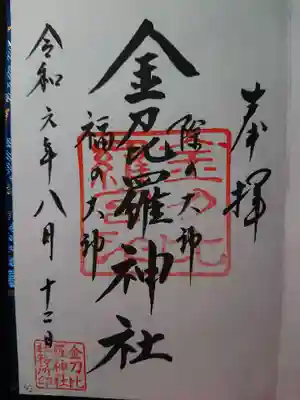 奉拝
除の大神
金刀毘羅神社
福の大神
令和元年八月十二日
金刀比
羅神社
社務所印